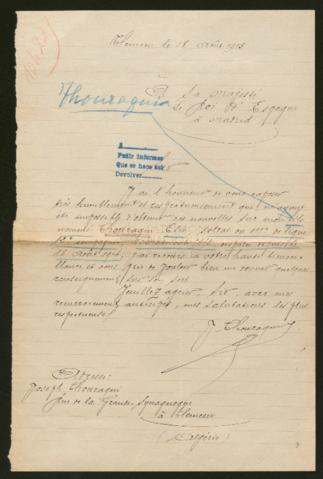 Tlemcen le 18 Août 1915
A Sa Majesté
Le Roi d'Espagne
à Madrid
Thouraqui
A
Pedir informes
Que se hace saber
Devolver
J'ai l'honneur de vous exposer
très humblement et respectueusement que
été impossible d'obtenir des nouvelles sur mon fils
nommé Chouraqui Elie, soldat au de ligne
compagnie, depuis
18 août 1914, j'ai recours à votre haute bienveil
lance et vous prie de vouloir bien me donner quelques
renseignements sur son sort.
Veuillez agréer, Sir, avec mes
remerciements anticipés, mes salutations les plus
respectueuses.
J. Chouraqui
Adresse:
Joseph Chouraqui
Rue de la Grande Synagogue
à Tlemcen
(Algérie)